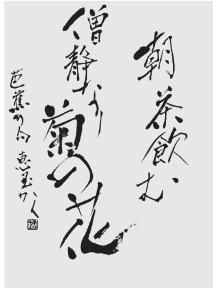 朝茶飲む
僧静なり
菊の花
芭蕉の句 恵玉かく